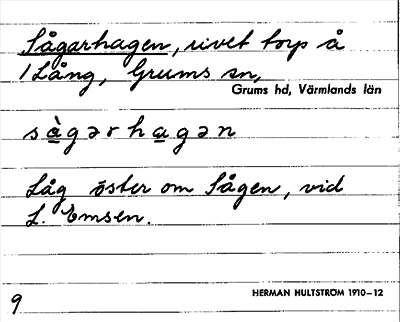 Sågarhagen, rivet torp å
1 Lång, Grums sn,
Grums hd, Värmlands län
sàgərhagən
Låg öster om Sågen, vid
L. Emsen.
HERMAN HULTSTRÖM 1910–12
9